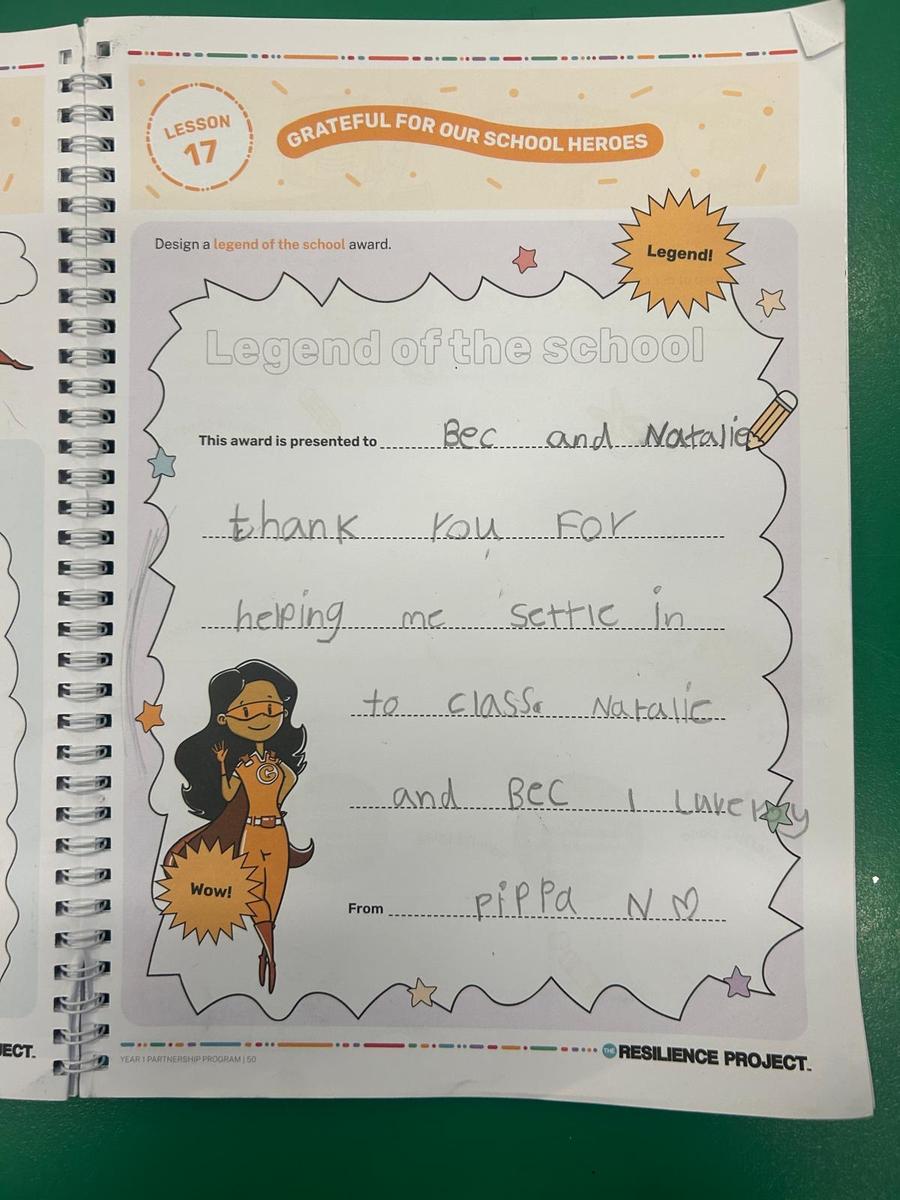 LESSON
17
GRATEFUL FOR OUR SCHOOL HEROES
Design a legend of the school award.
Legend!
Legend of the school
This award is presented to Bec and Natalie
thank You For
helping me settle in
to class. Natalie
and Bec I
Wow!
G
From Pippa N ♡
ECT.
YEAR 1 PARTNERSHIP PROGRAM | 50
THE RESILIENCE PROJECT.